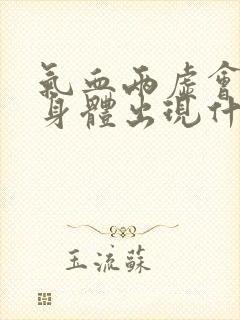 氣血兩虛會
身體出現什
玉流蘇